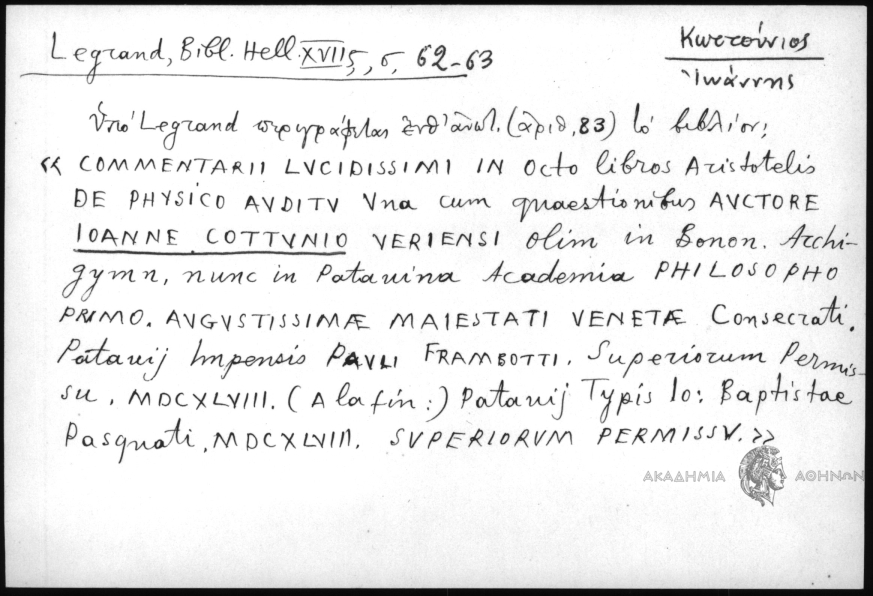 Legrand, Bibl. Hell. XVII5, σ, 62-63
Κωττούνιος
Ἰωάννης
Ὑπό Legrand περιγράφεται ἐνθ' ἀνωτ. (ἀριθ, 83) τό βιβλίον;
« COMMENTARII LVCIDISSIMI IN Octo libros Aristotelis
DE PHYSICO AVDITV Vna cum quaestionibus AVCTORE
IOANNE COTTVNIO VERIENSI olim in Bonon. Archi-
gymn, nunc in Patauina Academia PHILOSOPHO
PRIMO. AVGVSTISSIMÆ MAIESTATI VENETÆ Consecrati.
Patauij Impensis PAVLI FRAMBOTTI. Superiorum Permis-
su, MDCXLVIII. (A la fin:) Patauij Typis Io: Baptistae
Pasquati, MDCXLVIII. SVPERIORVM PERMISSV. »
ΑΚΑΔΗΜΙΑ ΑΘΗΝΩΝ